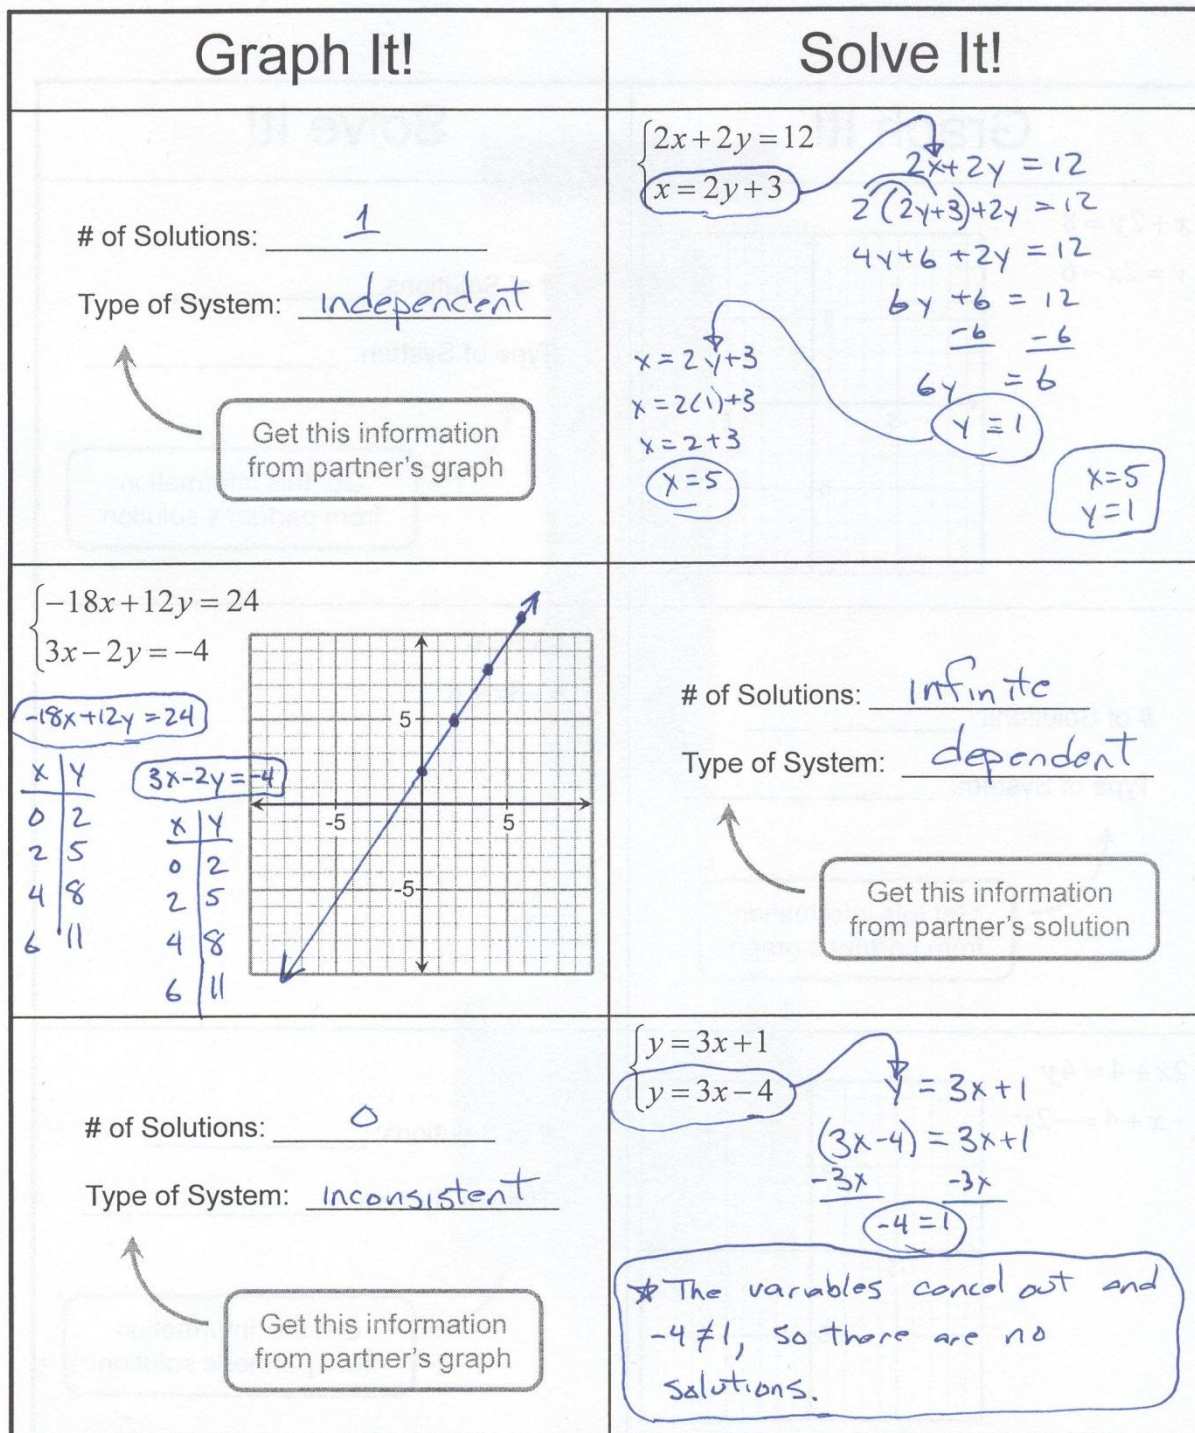 Graph It!
Solve It!
# of Solutions: 1
Type of System: independent
Get this information
from partner's graph
2x + 2y = 12
x = 2y + 3
2x + 2y = 12
2(2y+3)+2y = 12
4y+6 +2y = 12
6y +6 = 12
-6 -6
6y = 6
y = 1
x = 2y+3
x = 2(1)+3
x = 2+3
x = 5
x=5
y=1
-18x + 12y = 24
3x - 2y = -4
-18x+12y = 24
x y
0 2
2 5
4 8
6 11
3x-2y = -4
x y
0 2
2 5
4 8
6 11
5
-5 5
-5
# of Solutions: infinite
Type of System: dependent
Get this information
from partner's solution
# of Solutions: 0
Type of System: inconsistent
Get this information
from partner's graph
y = 3x + 1
y = 3x - 4
y = 3x+1
(3x-4) = 3x+1
-3x -3x
-4 = 1
* The variables cancel out and
-4 ≠ 1, so there are no
solutions.